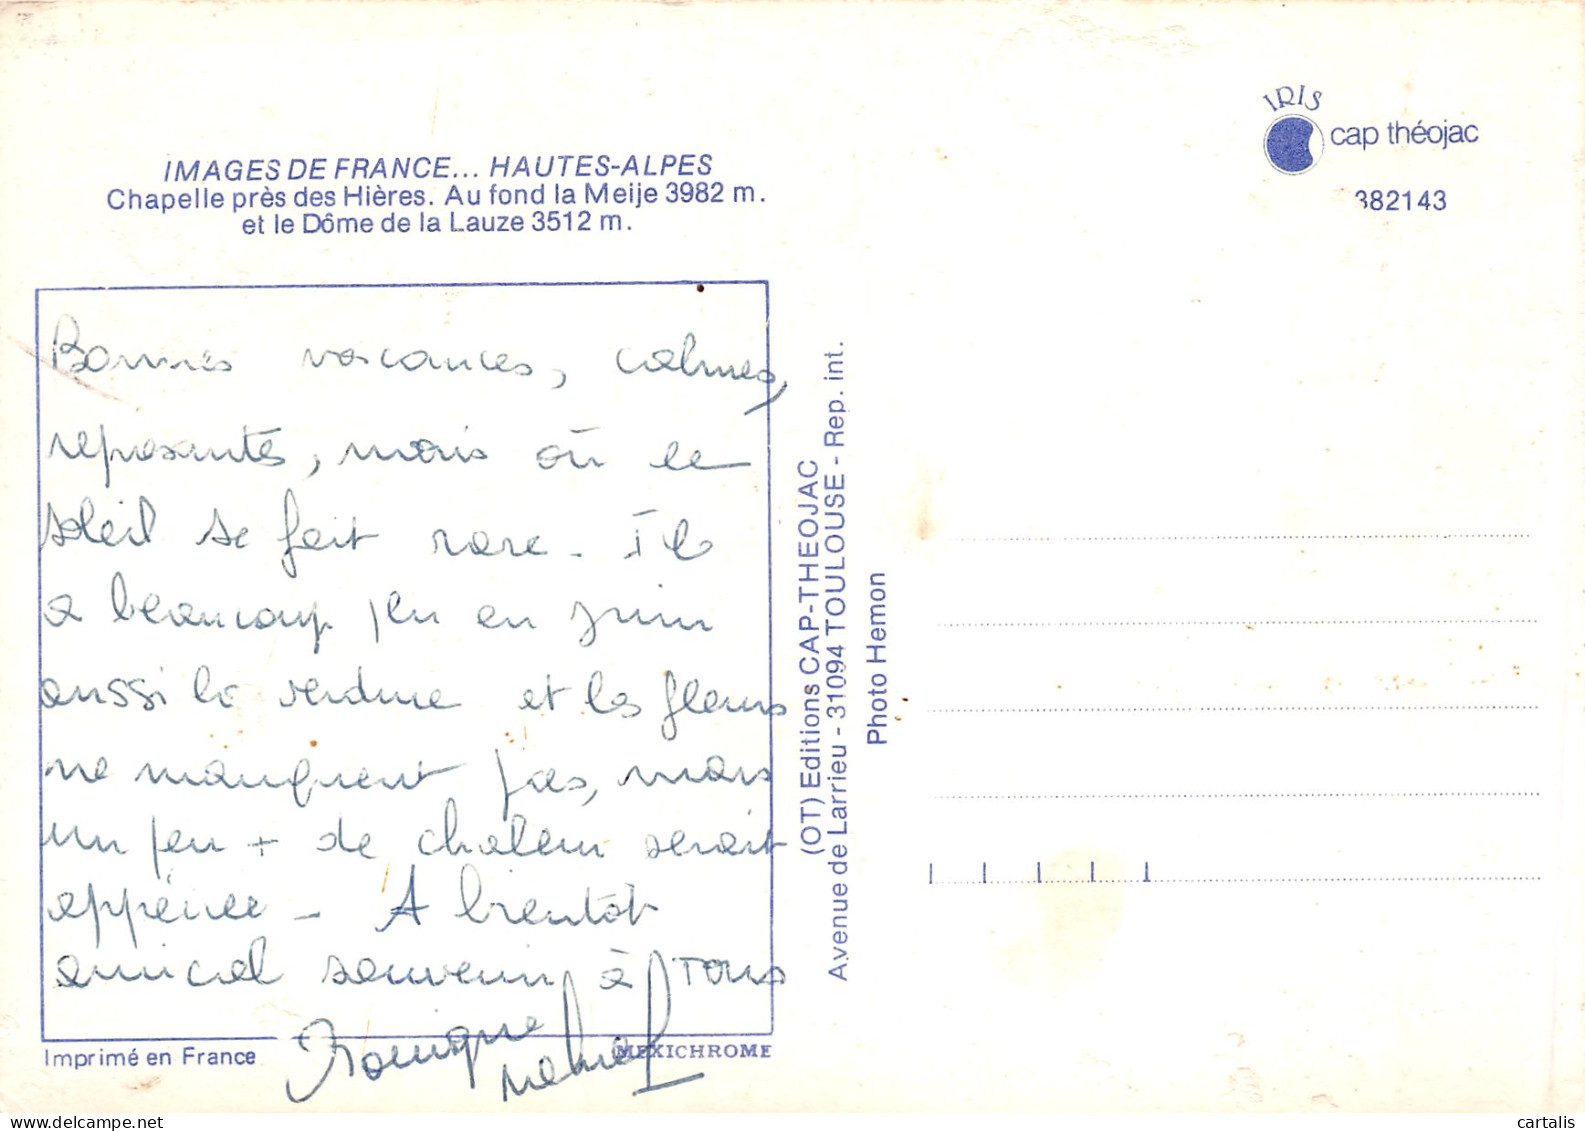 IRIS
cap théojac
382143
IMAGES DE FRANCE... HAUTES-ALPES
Chapelle près des Hières. Au fond la Meije 3982 m.
et le Dôme de la Lauze 3512 m.
Bonnes vacances, calmes,
reposantes, mais où le
soleil se fait rare - Il
a beaucoup plu en juin
aussi la verdure et les fleurs
ne manquent pas, mais
un peu + de chaleur serait
appréciée - A bientôt
amical souvenir à tous
Imprimé en France
MEXICHROME
(OT) Editions CAP-THEOJAC
Avenue de Larrieu - 31094 TOULOUSE - Rep. int.
Photo Hemon
cartalis